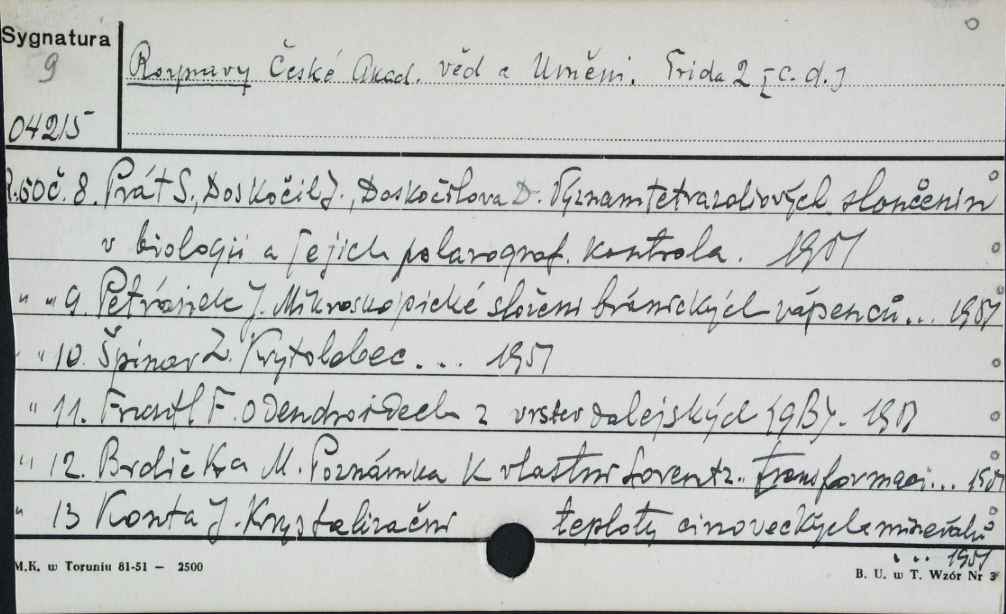 Sygnatura
9
04215
Rozpravy České Akad. věd a Uměni. Trida 2 [c. d.]
R.60č. 8. Prát S., Doskočil J., Doskočilova D. Významtetrazoliových sloučenin
v biologii a jejich polarograf. kontrola. 1951
" " 9. Petránek J. Mikroskopické složeni bránických vápenců... 1951
" " 10. Špinar Z. Krytolebec... 1951
" 11. Prantl F. O Dendroidech z vrstev dalejských (gβ). 1951
" 12. Brdička M. Poznámka k vlastni Lorentz.. transformaci... 1951
" 13 Konta J. Krystalizačni teploty cinoveckých minerálů
... 1951
M.K. w Toruniu 81-51 — 2500
B. U. w T. Wzór Nr 3